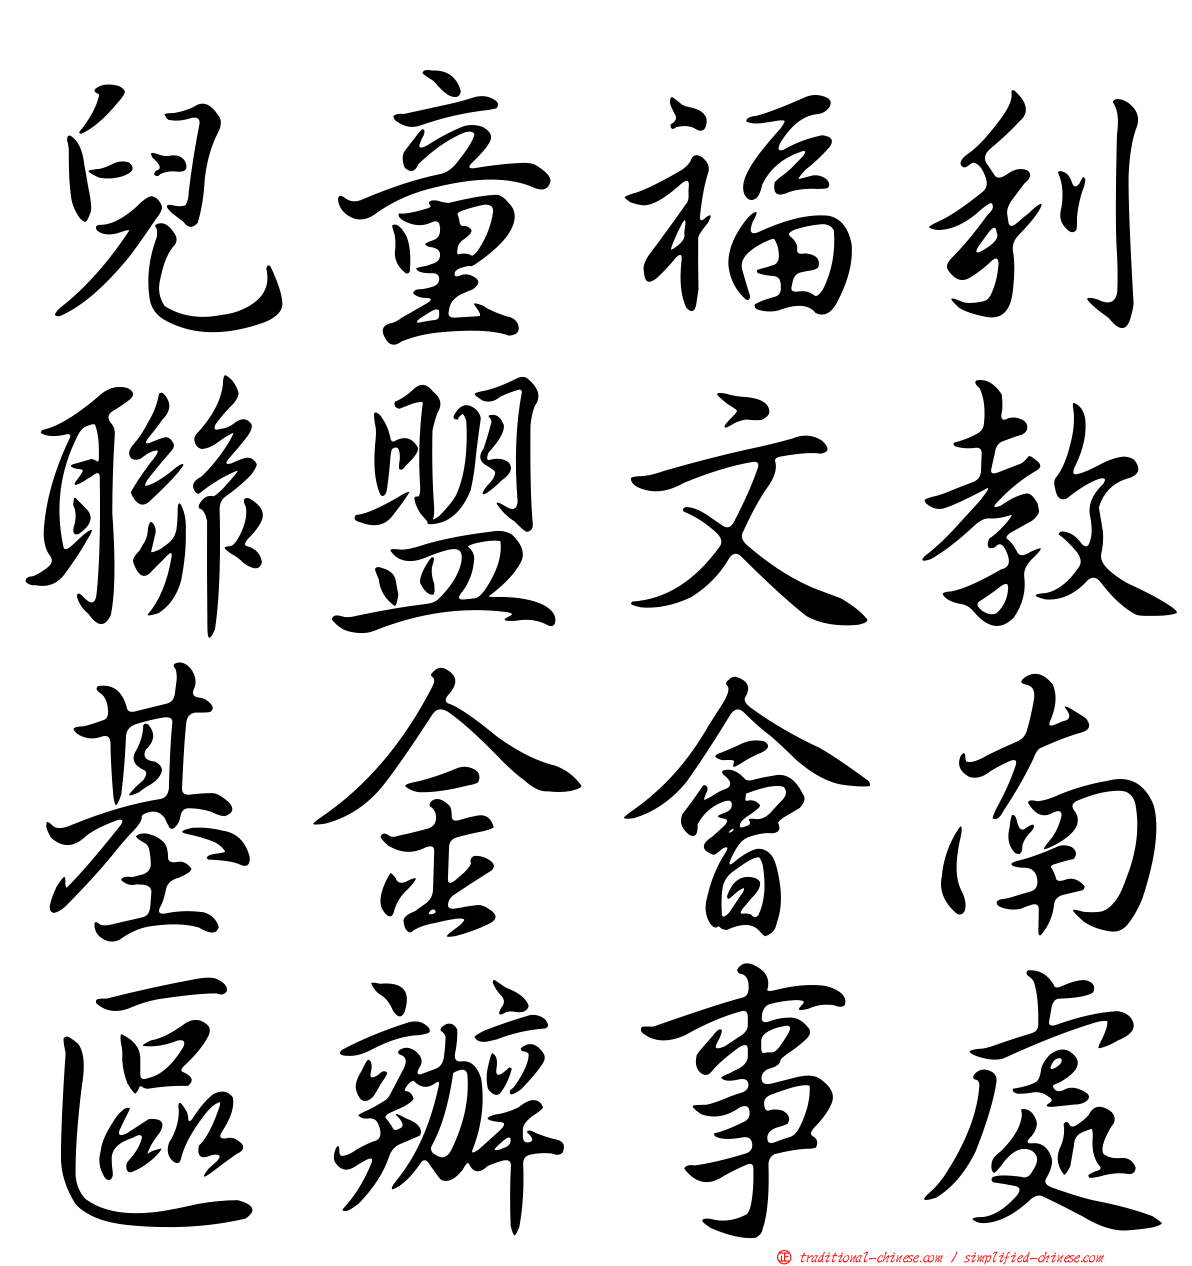 兒童福利
聯盟文教
基金會南
區辦事處
正 traditional-chinese.com / simplified-chinese.com